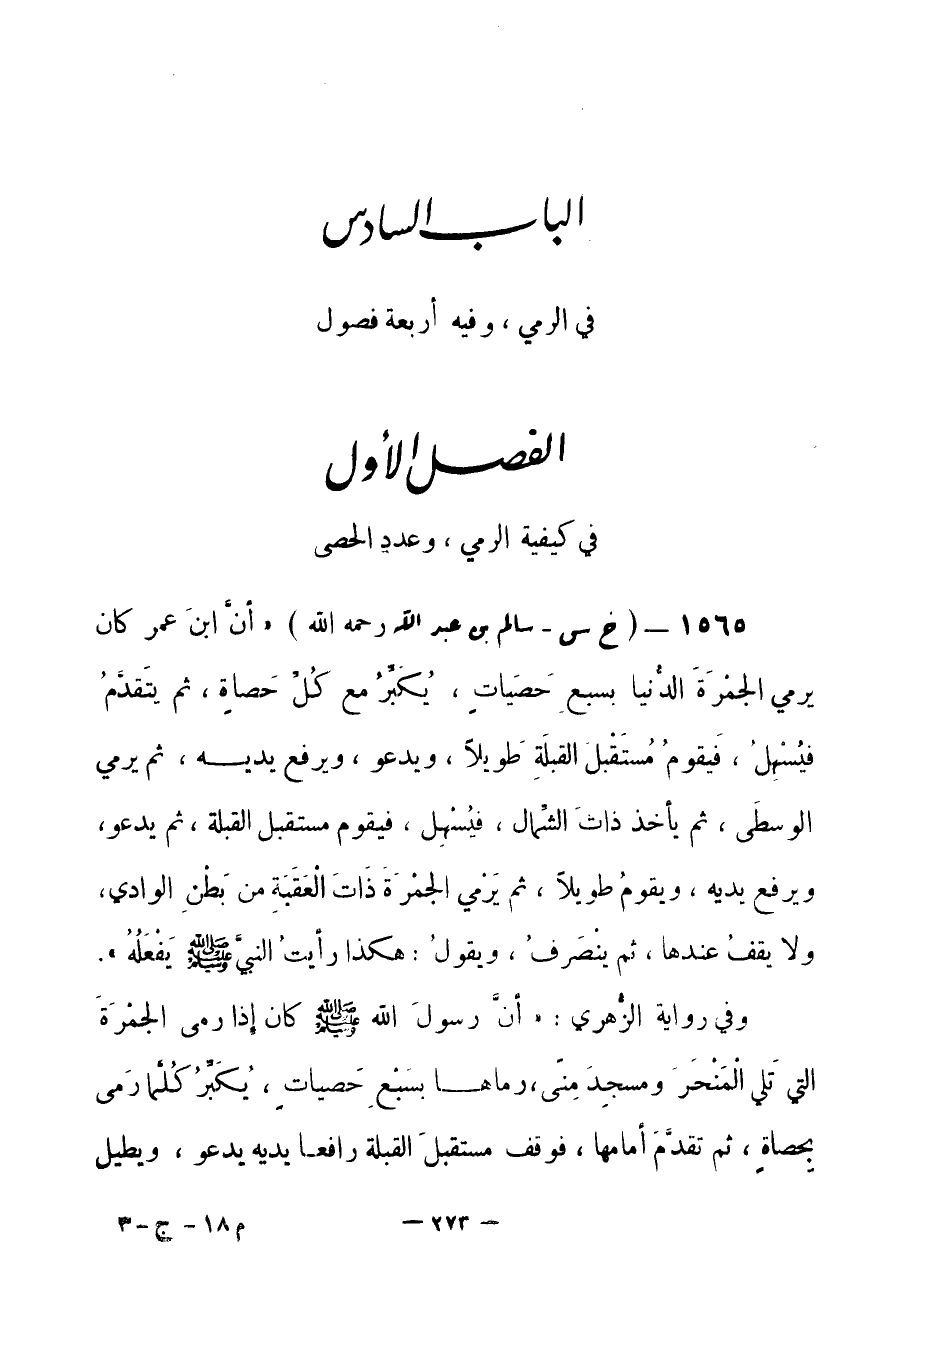 الباب السادس
في الرمي ، وفيه أربعة فصول
الفصل الأول
في كيفية الرمي ، وعددِ الحصى
١٥٦٥ – ( خ س - سالم بن عبد اللّه رحمه الله ) « أنَّ ابنَ عمر كان
يرمي الجمْرَةَ الدُّنيا بسبعِ حَصَياتٍ ، يُكَبِّرُ مع كُلِّ حَصاةٍ ، ثم يتَقدَّمُ
فيُسْهِلُ ، فَيقومُ مُستَقْبلَ القبلَةِ طَويلاً ، ويدعو ، ويرفع يديـــه ، ثم يرمي
الوسطَى ، ثم يأخذ ذاتَ الشِّمال ، فيُسْهِل ، فيقوم مستقبل القبلة ، ثم يدعو ،
ويرفع يديه ، ويقومُ طويلاً ، ثم يَرْمي الجمْرَةَ ذَاتَ الْعَقَبَةِ من بَطْنِ الوادي ،
ولا يقفُ عندها ، ثم ينْصَرفُ ، ويقولُ : هكذا رأيتُ النبيَّ ﷺ يَفْعَلُهُ » .
وفي رواية الزُّهري : « أنَّ رسولَ الله ﷺ كان إذا رمى الجمْرَةَ
التي تَلي الْمَنْحَرَ ومسجِدَ مِنًى ، رماهـــا بسَبْعِ حَصياتٍ ، يُكَبِّرُ كُلَّما رَمى
بِحصاةٍ ، ثم تقدَّمَ أمامها ، فوقف مستقبلَ القبلة رافعـا يديه يدعو ، ويطيل
– ٢٧٣ –
م ١٨ - ج - ٣